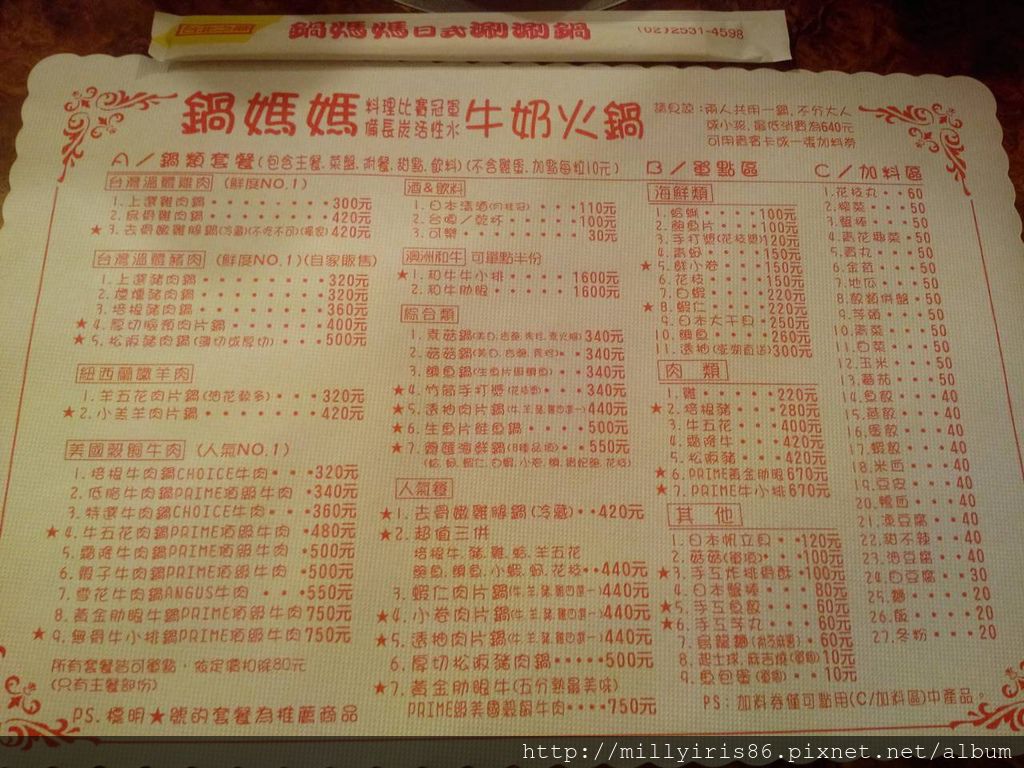 鍋媽媽日式涮涮鍋 (02)2531-4598
鍋媽媽 料理比賽冠軍 備長炭活性水 牛奶火鍋
請見諒：兩人共用一鍋,不分大人
或小孩,最低消費為640元
可用貴賓卡或一張加料券
A／鍋類套餐(包含主餐.菜盤.附餐.甜點.飲料)(不含雞蛋.加點每粒10元)
台灣溫體雞肉 (鮮度NO.1)
1.上選雞肉鍋・・・・・・・300元
2.烏骨雞肉鍋・・・・・・・420元
★3.去骨嫩雞腿鍋(冷藏)(不吃不可)(獨家)420元
台灣溫體豬肉 (鮮度NO.1)(自家販售)
1.上選豬肉鍋・・・・・・・320元
2.煙燻豬肉鍋・・・・・・・320元
3.培根豬肉鍋・・・・・・・360元
★4.厚切臉頰肉片鍋・・・・・400元
★5.松阪豬肉鍋(薄切或厚切)・・・500元
紐西蘭嫩羊肉
1.羊五花肉片鍋(油花較多)・・・320元
★2.小羔羊肉片鍋・・・・・・420元
美國穀飼牛肉 (人氣NO.1)
1.培根牛肉鍋CHOICE牛肉・・・320元
2.低脂牛肉鍋PRIME頂級牛肉・340元
3.特選牛肉鍋CHOICE牛肉・・・360元
★4.牛五花肉鍋PRIME頂級牛肉・480元
5.霜降牛肉鍋PRIME頂級牛肉・500元
6.骰子牛肉鍋PRIME頂級牛肉・500元
7.雪花牛肉鍋ANGUS牛肉・・・550元
8.黃金肋眼牛鍋PRIME頂級牛肉750元
★9.無骨牛小排鍋PRIME頂級牛肉750元
所有套餐皆可單點・依定價扣除80元
(只有主餐部份)
PS.標明★號的套餐為推薦商品
酒&飲料
1.日本清酒(月桂冠)・・・・110元
2.台啤／乾杯・・・・・・100元
3.可樂・・・・・・・・30元
澳洲和牛 可單點半份
★1.和牛牛小排・・・・・1600元
2.和牛肋眼・・・・・・1600元
綜合類
1.素菇鍋 340元
2.菇菇鍋 340元
3.鯛魚鍋 340元
★4.竹筒手打漿(花枝漿)・・・340元
★5.透抽肉片鍋(牛.羊.豬.雞四選一)440元
★6.生魚片鮭魚鍋・・・・・500元
★7.霸匯海鮮鍋(8種品項)・・・550元
人氣餐
★1.去骨嫩雞腿鍋(冷藏)・・420元
★2.超值三併
培根牛.豬.雞.蛤.羊五花
鮑魚.鯛魚.小蝦.蚵.花枝・・440元
3.蝦仁肉片鍋(牛.羊.豬.雞四選一)440元
★4.小卷肉片鍋(牛.羊.豬.雞四選一)440元
★5.透抽肉片鍋(牛.羊.豬.雞四選一)440元
6.厚切松阪豬肉鍋・・・・・500元
★7.黃金肋眼牛(五分熟最美味)
PRIME級美國穀飼牛肉・・・・750元
B／單點區
海鮮類
1.蛤蜊・・・・・100元
2.鮑魚片・・・・100元
3.手打漿(花枝漿)120元
4.青蚵・・・・・150元
★5.鮮小卷・・・・150元
6.花枝・・・・・150元
7.白蝦・・・・・220元
★8.蝦仁・・・・・220元
9.日本大干貝・・250元
10.鯛魚・・・・・260元
11.透抽(澎湖直送)300元
肉類
1.雞・・・・・・220元
★2.培根豬・・・・280元
3.牛五花・・・・400元
4.霜降牛・・・・420元
5.松阪豬・・・・420元
★6.PRIME黃金肋眼670元
★7.PRIME牛小排670元
其他
1.日本帆立貝・・120元
2.菇菇(單項)・・・100元
★3.手工炸排骨酥・100元
4.日本蟹棒・・・80元
★5.手工魚餃・・・60元
★6.手工芋丸・・・60元
7.烏龍麵 60元
8.起士球.麻吉燒(單顆)10元
9.魚包蛋(單顆)・・10元
PS：加料券僅可點用(C/加料區)中產品。
C／加料區
1.花枝丸・・60
2. 50
3.蟹棒・・・50
4. 50
5.貢丸・・・50
6.金菇・・・50
7.地瓜・・・50
8.餃類併盤・50
9.芋頭・・・50
10.青菜・・・50
11.白菜・・・50
12.玉米・・・50
13.番茄・・・50
14.魚餃・・・40
15.燕餃・・・40
16.蛋餃・・・40
17.蝦餃・・・40
18.米血・・・40
19.豆皮・・・40
20.鴨血・・・40
21.凍豆腐・・40
22.甜不辣・・40
23.油豆腐・・40
24.白豆腐・・30
25.麵・・・・20
26.飯・・・・20
27.冬粉・・・20
http://millyiris86.pixnet.net/album